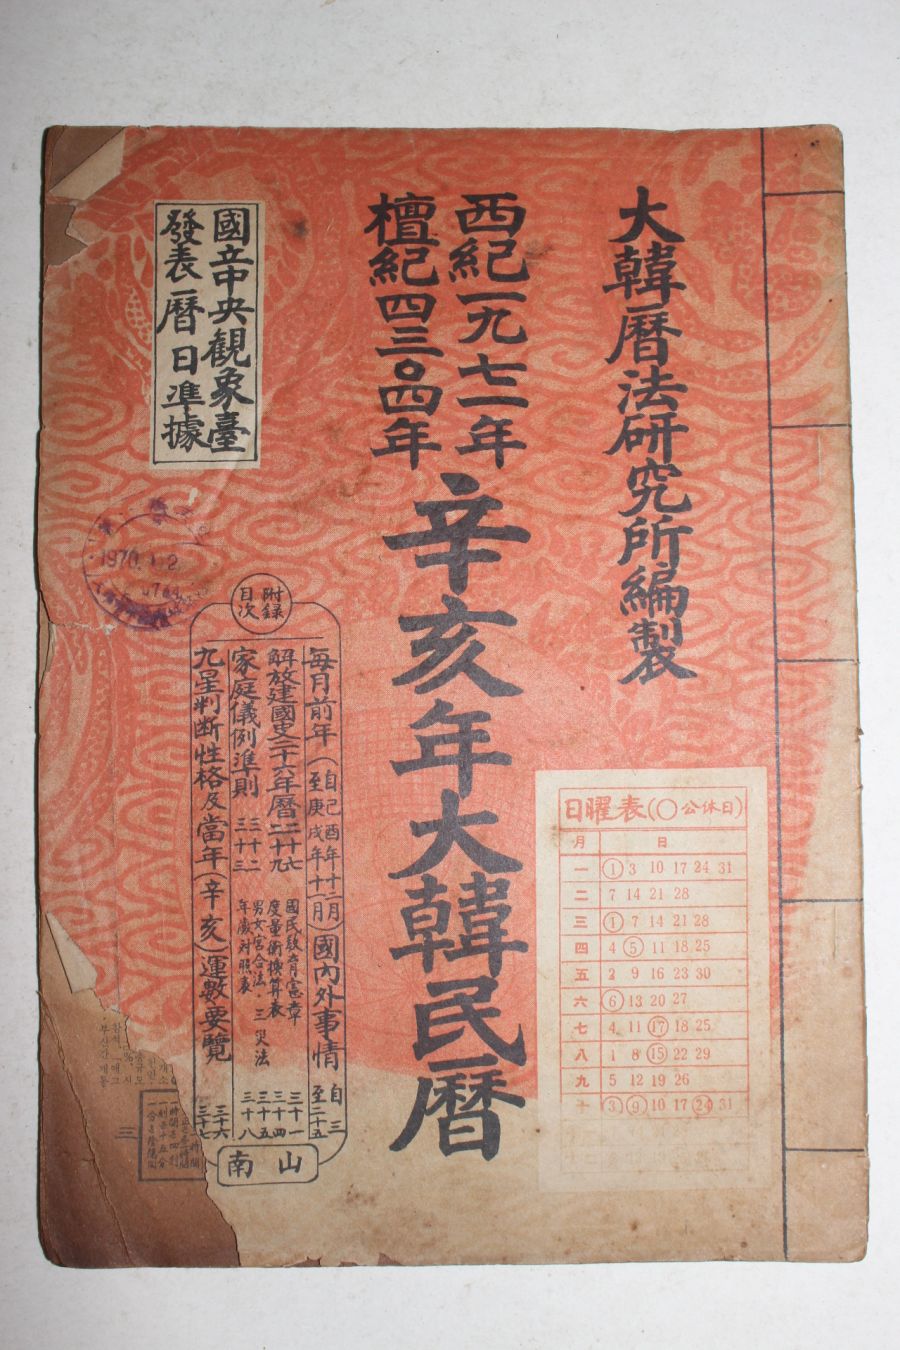 大韓曆法硏究所編製
西紀一九七一年
檀紀四三〇四年
辛亥年大韓民曆
國立中央観象臺
發表曆日準據
1970. 1. 2.
附録
目次
每月前年(自己酉年十二月 至庚戌年十一月)國內外事情 自三 至二十五
解放建國史二十六年曆 二十六 二十九
國民敎育憲章 三十一
度量衡換算表 三十四
家庭儀例準則 三十二 三十三
男女宮合法・三災法 三十五
年歲対照表 三十八
九星判断性格及當年(辛亥)運數要覽 三十六 三十七
南山
日曜表(〇公休日)
月 日
一 ① 3 10 17 24 31
二 7 14 21 28
三 ① 7 14 21 28
四 4 ⑤ 11 18 25
五 2 9 16 23 30
六 ⑥ 13 20 27
七 4 11 ⑰ 18 25
八 1 8 ⑮ 22 29
九 5 12 19 26
十 ③ ⑨ 10 17 ㉔ 31
三